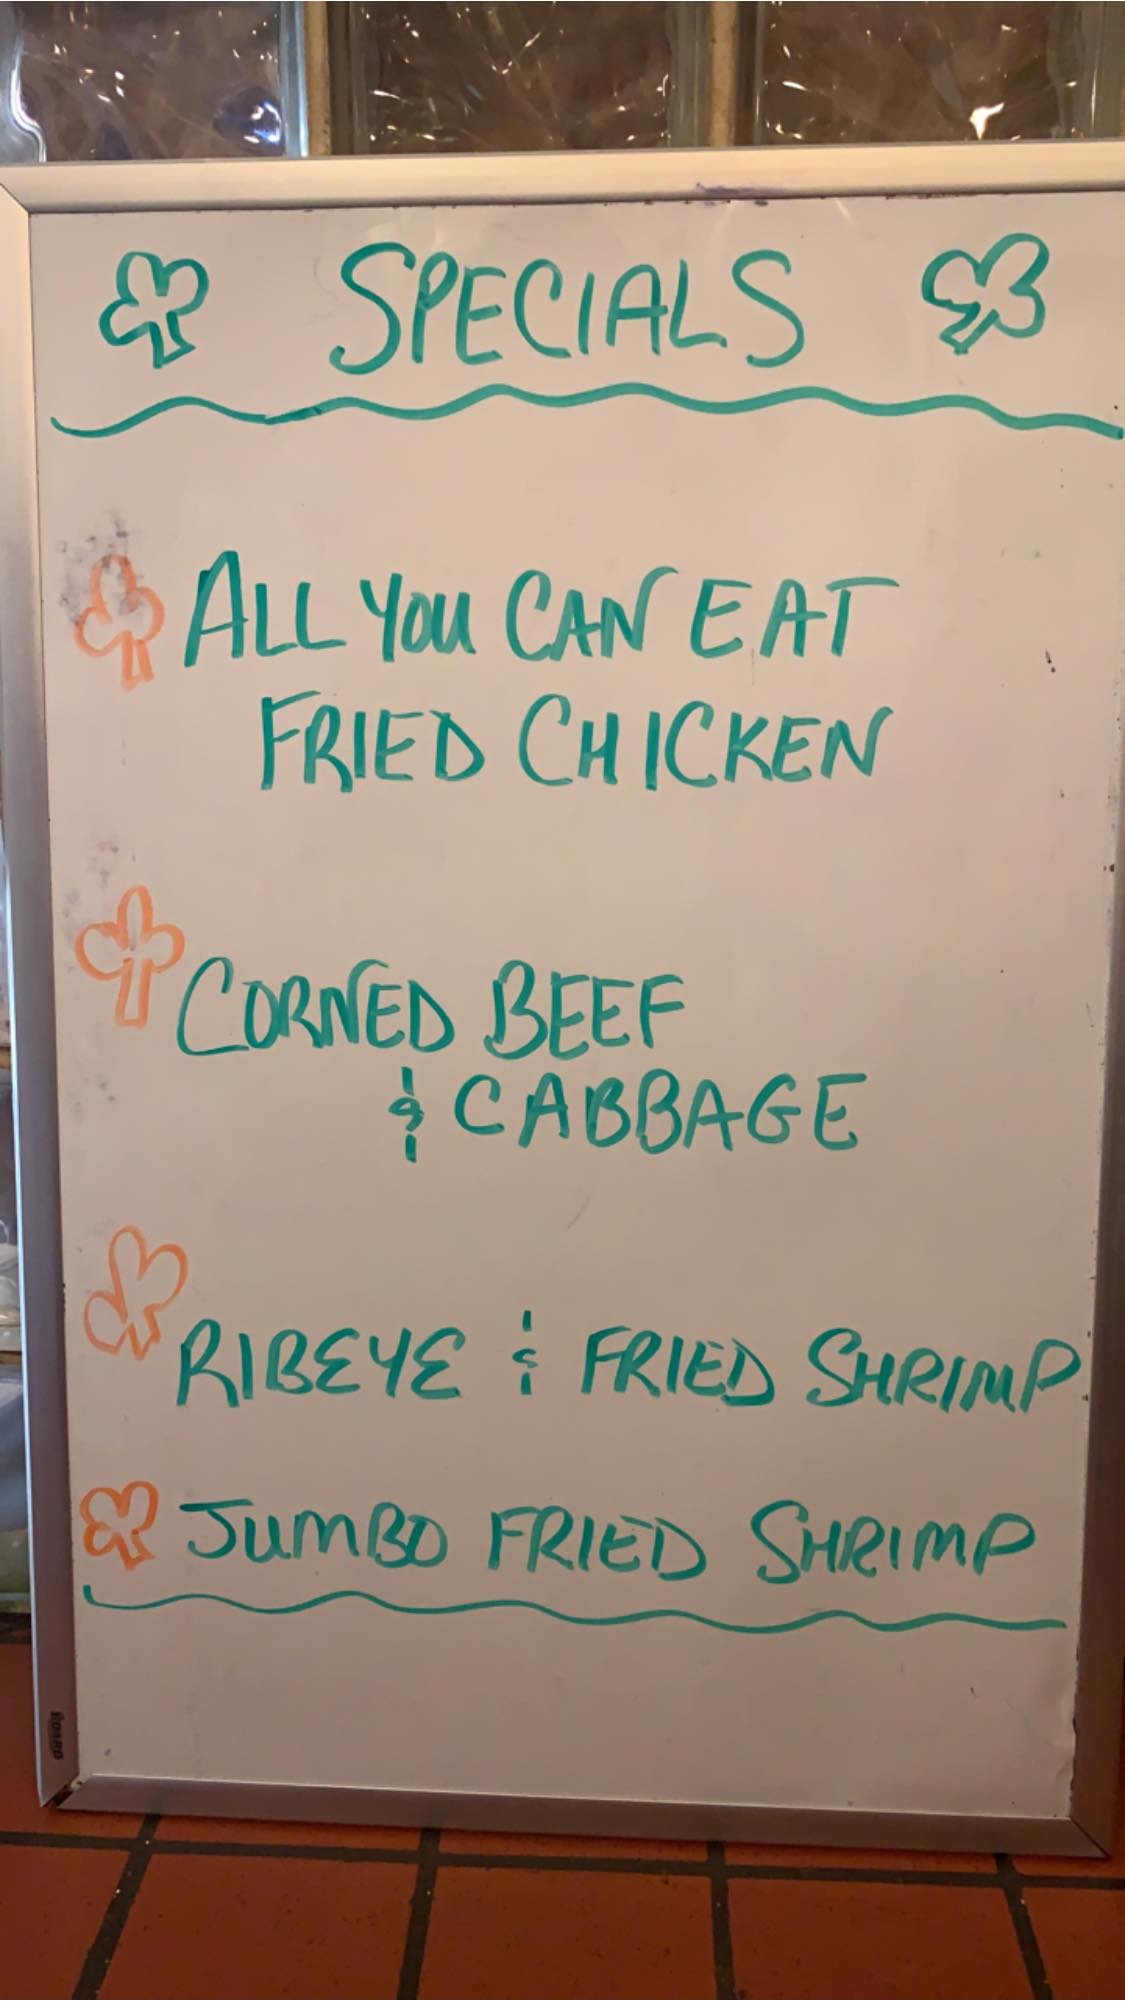 SPECIALS
ALL YOU CAN EAT
FRIED CHICKEN
CORNED BEEF
& CABBAGE
RIBEYE & FRIED SHRIMP
JUMBO FRIED SHRIMP